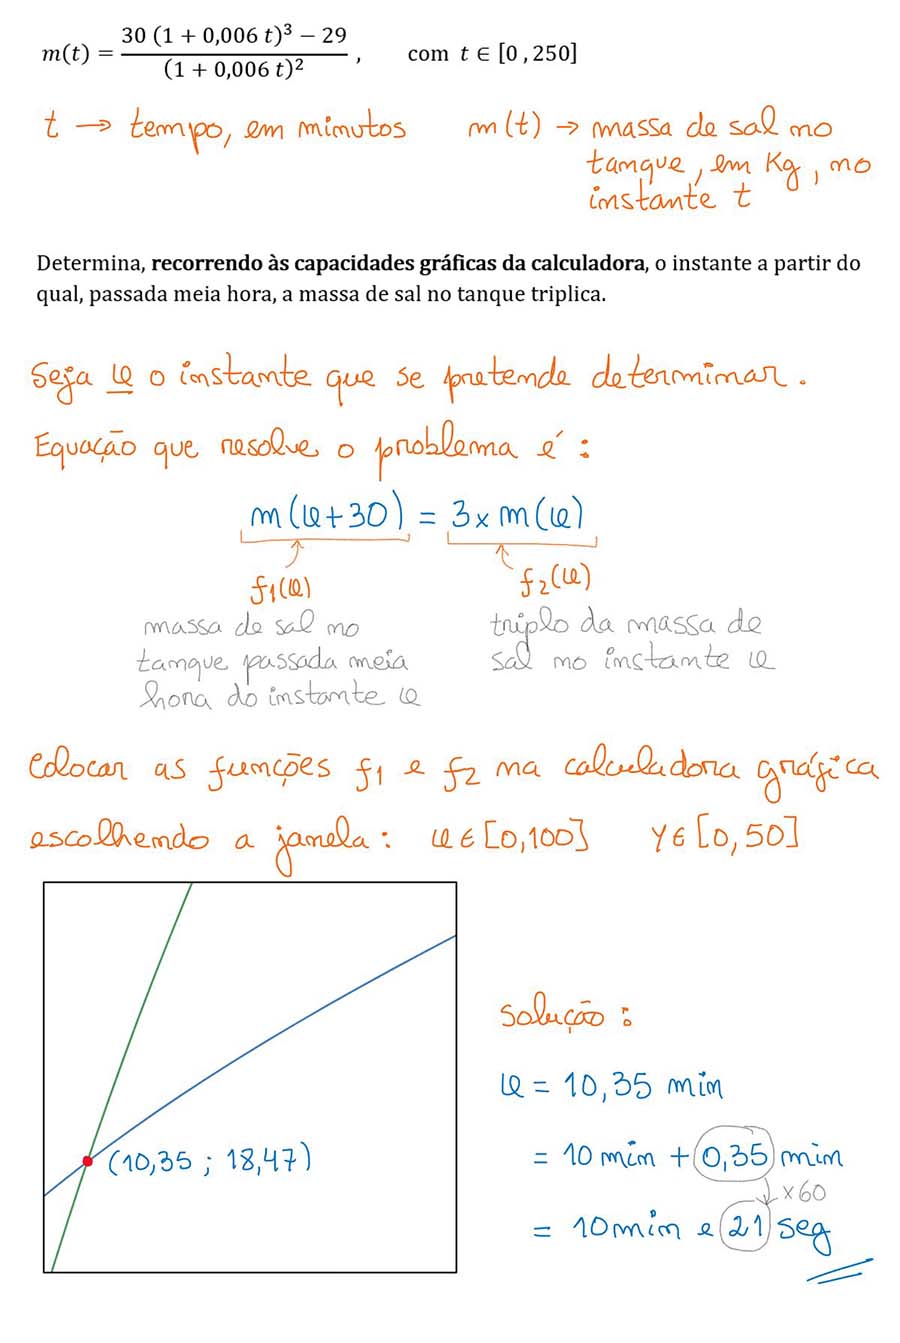 m(t) = (30 (1 + 0,006 t)³ − 29) / (1 + 0,006 t)² , com t ∈ [0 , 250]
t → tempo, em minutos m(t) → massa de sal no
tanque, em Kg, no
instante t
Determina, recorrendo às capacidades gráficas da calculadora, o instante a partir do
qual, passada meia hora, a massa de sal no tanque triplica.
Seja x o instante que se pretende determinar.
Equação que resolve o problema é:
m(x+30) = 3 × m(x)
f1(x) f2(x)
massa de sal no
tanque passada meia
hora do instante x
triplo da massa de
sal no instante x
Colocar as funções f1 e f2 na calculadora gráfica
escolhendo a janela: x ∈ [0,100] Y ∈ [0, 50]
(10,35 ; 18,47)
Solução:
x = 10,35 min
= 10 min + 0,35 min
×60
= 10 min e 21 seg